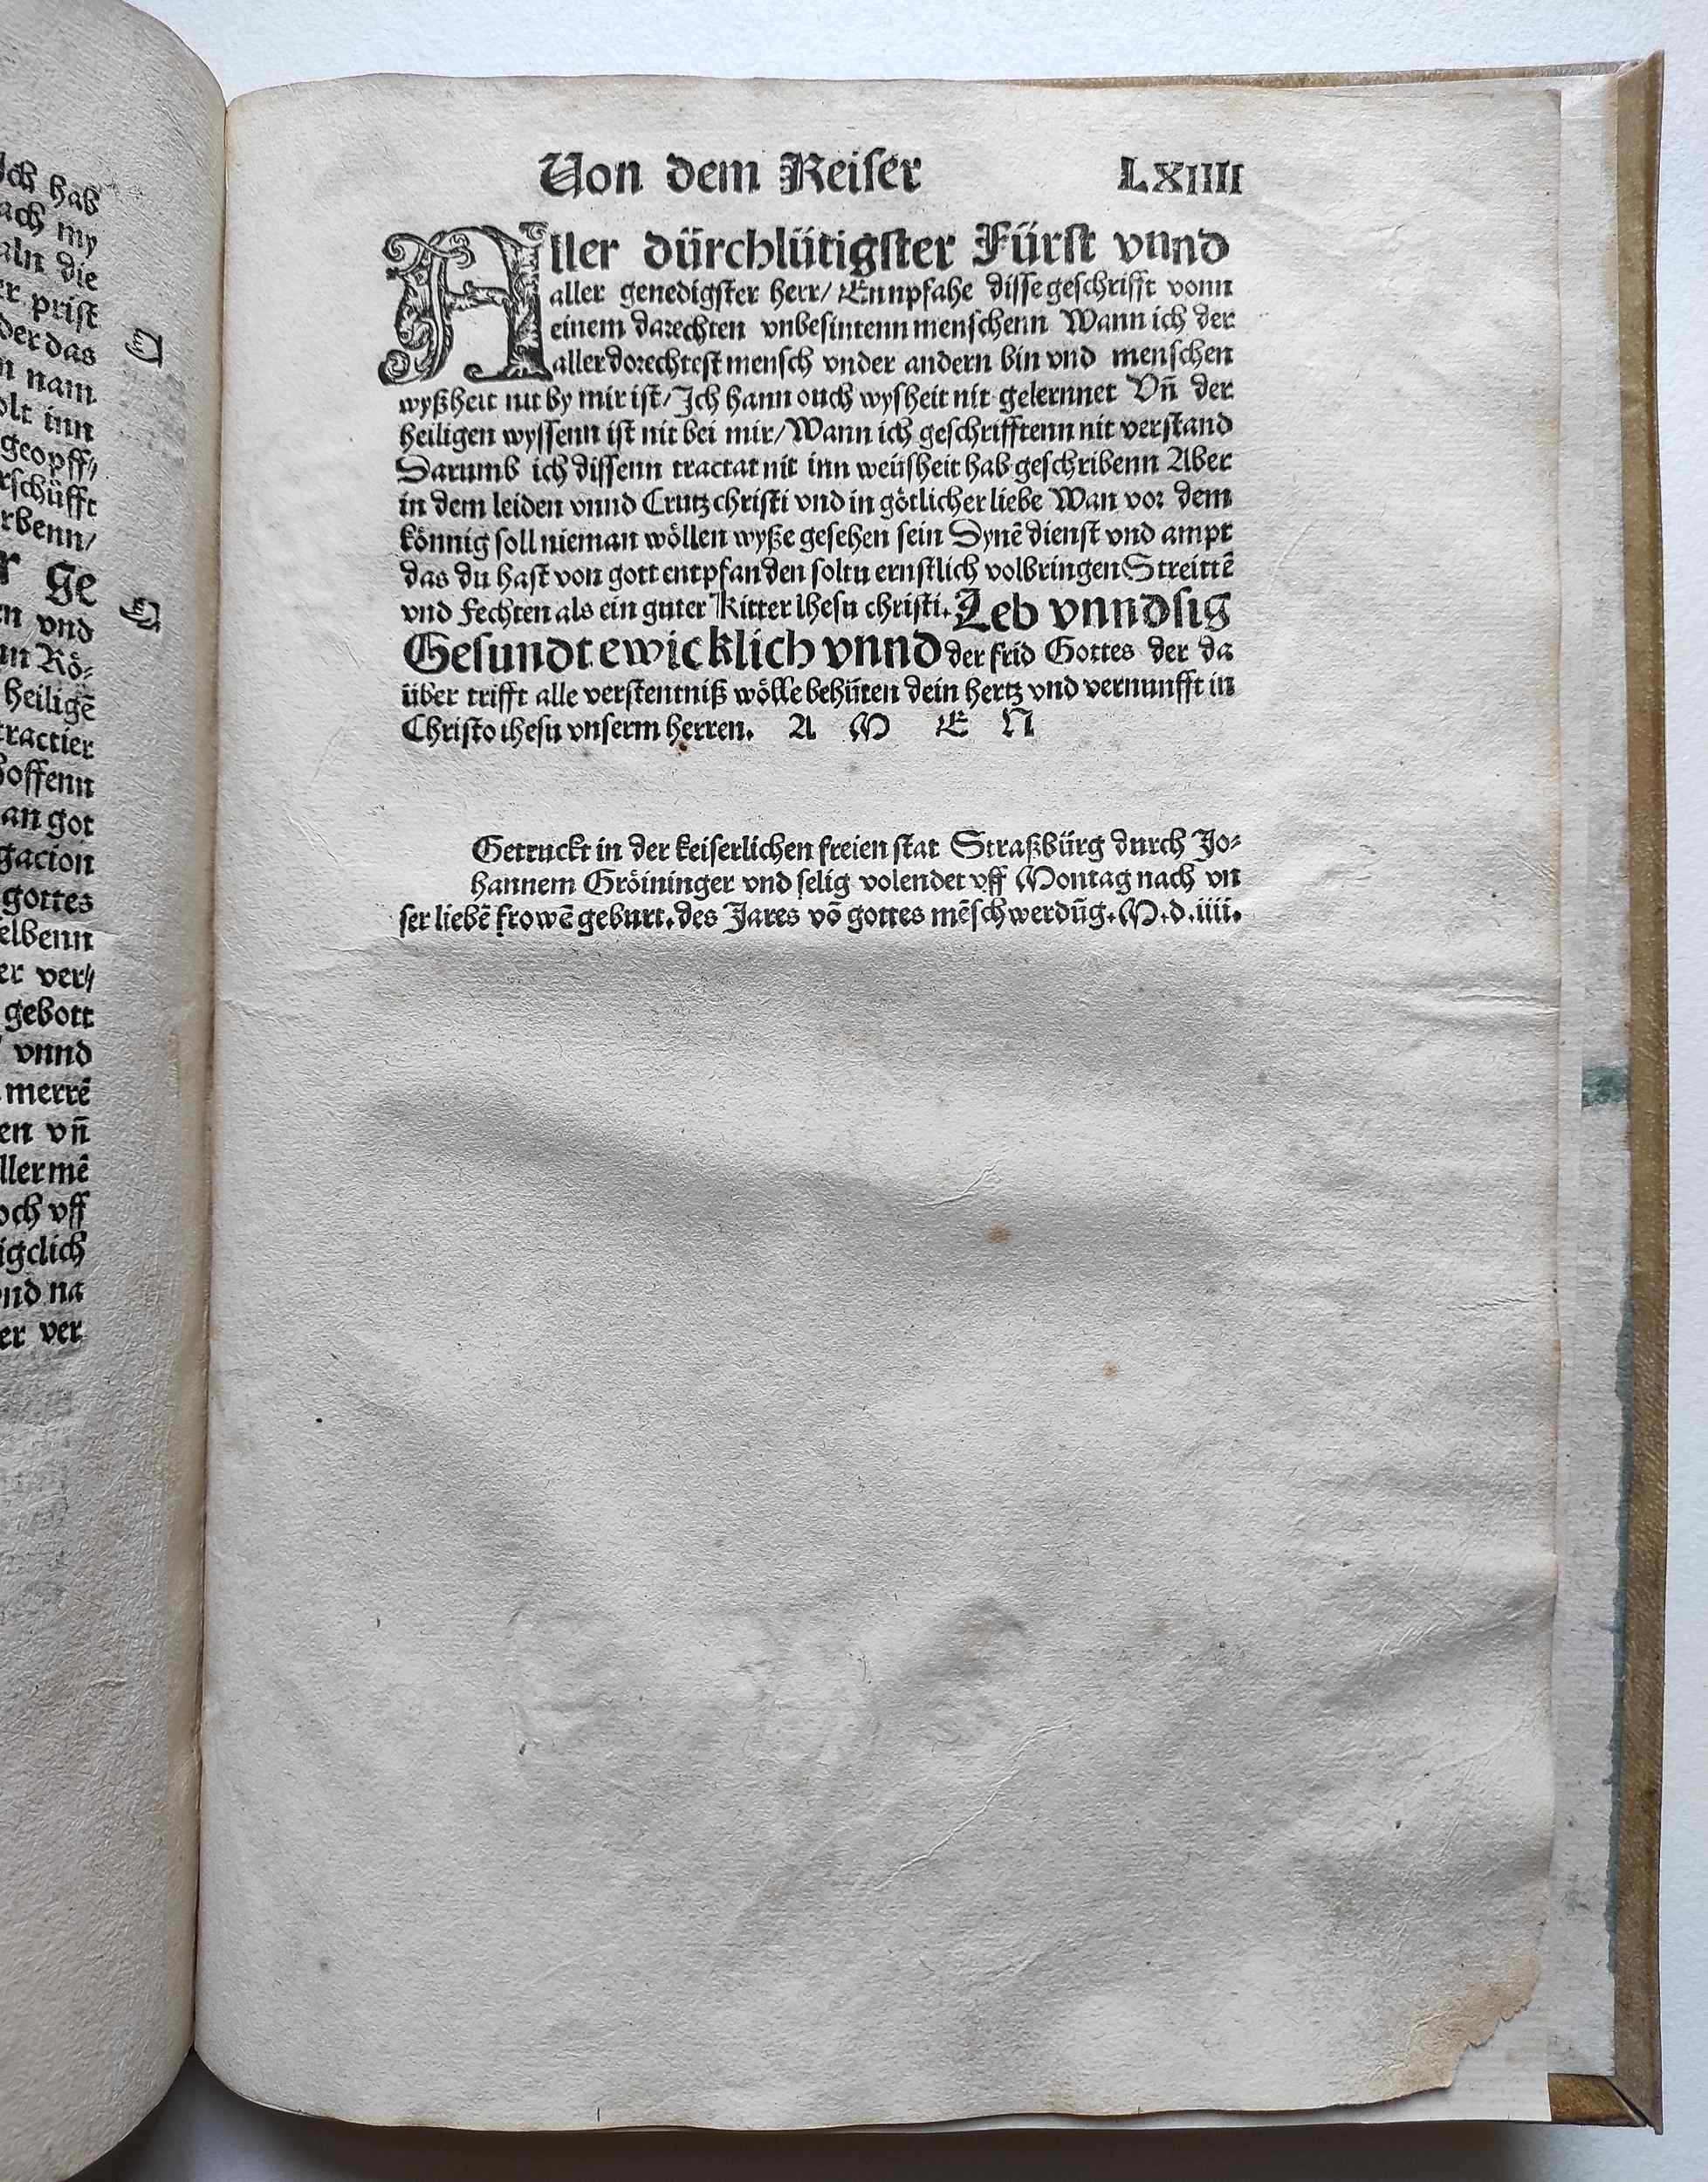 Jch hab
ach my
aln die
er prist
der das
n nam
olt inn
geopff⸗
rschüfft
rbenn/
r ge
en vnd
un Rö⸗
heiligē
tractier
hoffenn
an got
gacion
gottes
elbenn
er ver⸗
gebott
vnnd
merrē
en vn̄
ller mē
och vff
igclich
vnd na
er ver
Von dem Keiser LXIIII
Aller dürchlütigster Fürst vnnd
aller genedigster herr/ Ennpfahe disse geschrifft vonn
einem darechten vnbesintenn menschenn Wann ich der
aller dorechtest mensch vnder andern bin vnd menschen
wyßheit nit by mir ist/ Jch hann ouch wysheit nit gelernnet Vn̄ der
heiligen wyssenn ist nit bei mir/ Wann ich geschrifftenn nit verstand
Darumb ich dissenn tractat nit inn weüsheit hab geschribenn Aber
in dem leiden vnnd Crutz christi vnd in götlicher liebe Wan vor dem
könnig soll nieman wöllen wyße gesehen sein Dynē dienst vnd ampt
das du hast von gott entpfanden soltu ernstlich volbringen Streittē
vnd fechten als ein guter Ritter ihesu christi. Leb vnnd sig
Gesundt ewicklich vnnd der frid Gottes der da
über trifft alle verstentniß wölle behüten dein hertz vnd vernunfft in
Christo ihesu vnserm herren. A M E N
Getruckt in der keiserlichen freien stat Straßbürg durch Jo⸗
hannem Gröininger vnd selig volendet vff Montag nach vn
ser liebē frowē geburt. des Jares vō gottes mēschwerdūg. M.d.iiii.